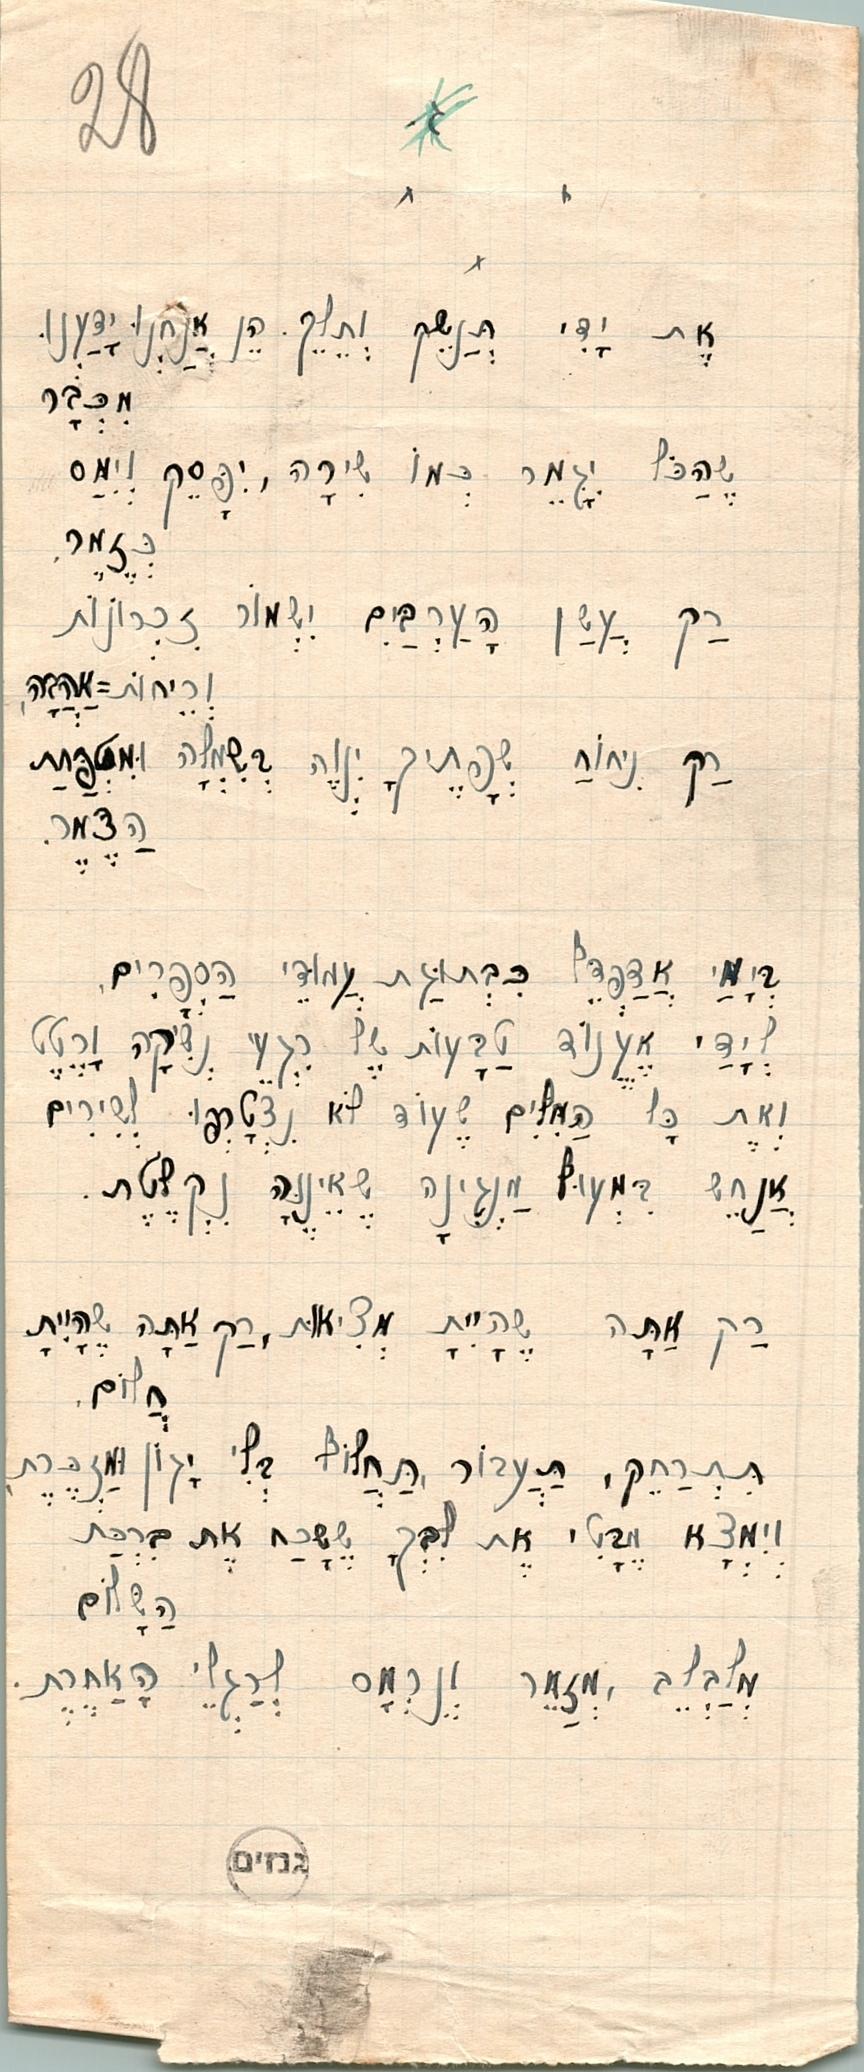 28
אֶת יָדִי תְּנַשֵּׁק וְתֵלֵךְ. הֵן אֲנַחְנוּ יָדַעְנוּ
מִכְּבָר
שֶׁהַכֹּל יִגָּמֵר כְּמוֹ שִׁירָה, יִפָּסֵק וְיִמַּס
כְּזֶמֶר,
רַק עֲשַׁן הָעַרְבַּיִם יִשְׁמוֹר זִכְרוֹנוֹת
וְרֵיחוֹת=אַהֲבָה,
רַק נִיחוֹחַ שְׂפָתֶיךָ יִנְוֶה בְּשִׂמְלָה וּמִטְפַּחַת
הַצֶּמֶר.
בְּיָמַי אֲדַפְדֵּף כִּבְתוּגַת עַמּוּדֵי הַסְּפָרִים,
לְיָדַי אֶעֱנוֹד טַבָּעוֹת שֶׁל רִגְעֵי נְשִׁיקָה וָרֶטֶט
וְאֶת כָּל הַמִּלִּים שֶׁעוֹד לֹא נִצְטָרְפוּ לְשִׁירִים
אֲנַחֵשׁ בִּמְעוּף מַנְגִּינָה שֶׁאֵינֶנָּה נִקְלֶטֶת.
רַק אַתָּה שֶׁהָיִיתָ מְצִיאוּת, רַק אַתָּה שֶׁהָיִיתָ
חֲלוֹם,
תִּתְרַחֵק, תַּעֲבוֹר, תַּחֲלוֹף בְּלִי יָגוֹן וּמַזְכֶּרֶת,
וְיִמְצָא מַבָּטִי אֶת לִבְּךָ שֶׁשָּׁכַח אֶת בִּרְכַּת
הַשָּׁלוֹם
מְלַבְלֵב, מְזַמֵּר וְנִרְמָס לְרַגְלֵי הָאַחֶרֶת.
גנזים